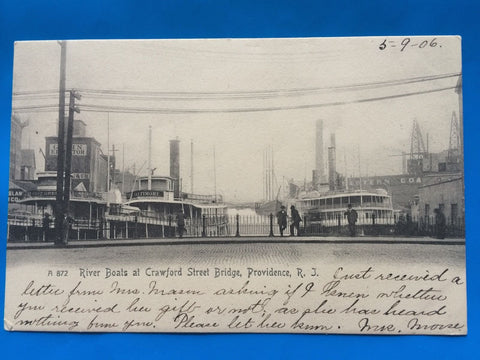 5-9-06.
COA
A 872 River Boats at Crawford Street Bridge, Providence, R. I.
Just received a
letter from Mrs. Mason asking if I knew whether
you received her gift or not, as she has heard
nothing from you. Please let her know. Mrs. Morse